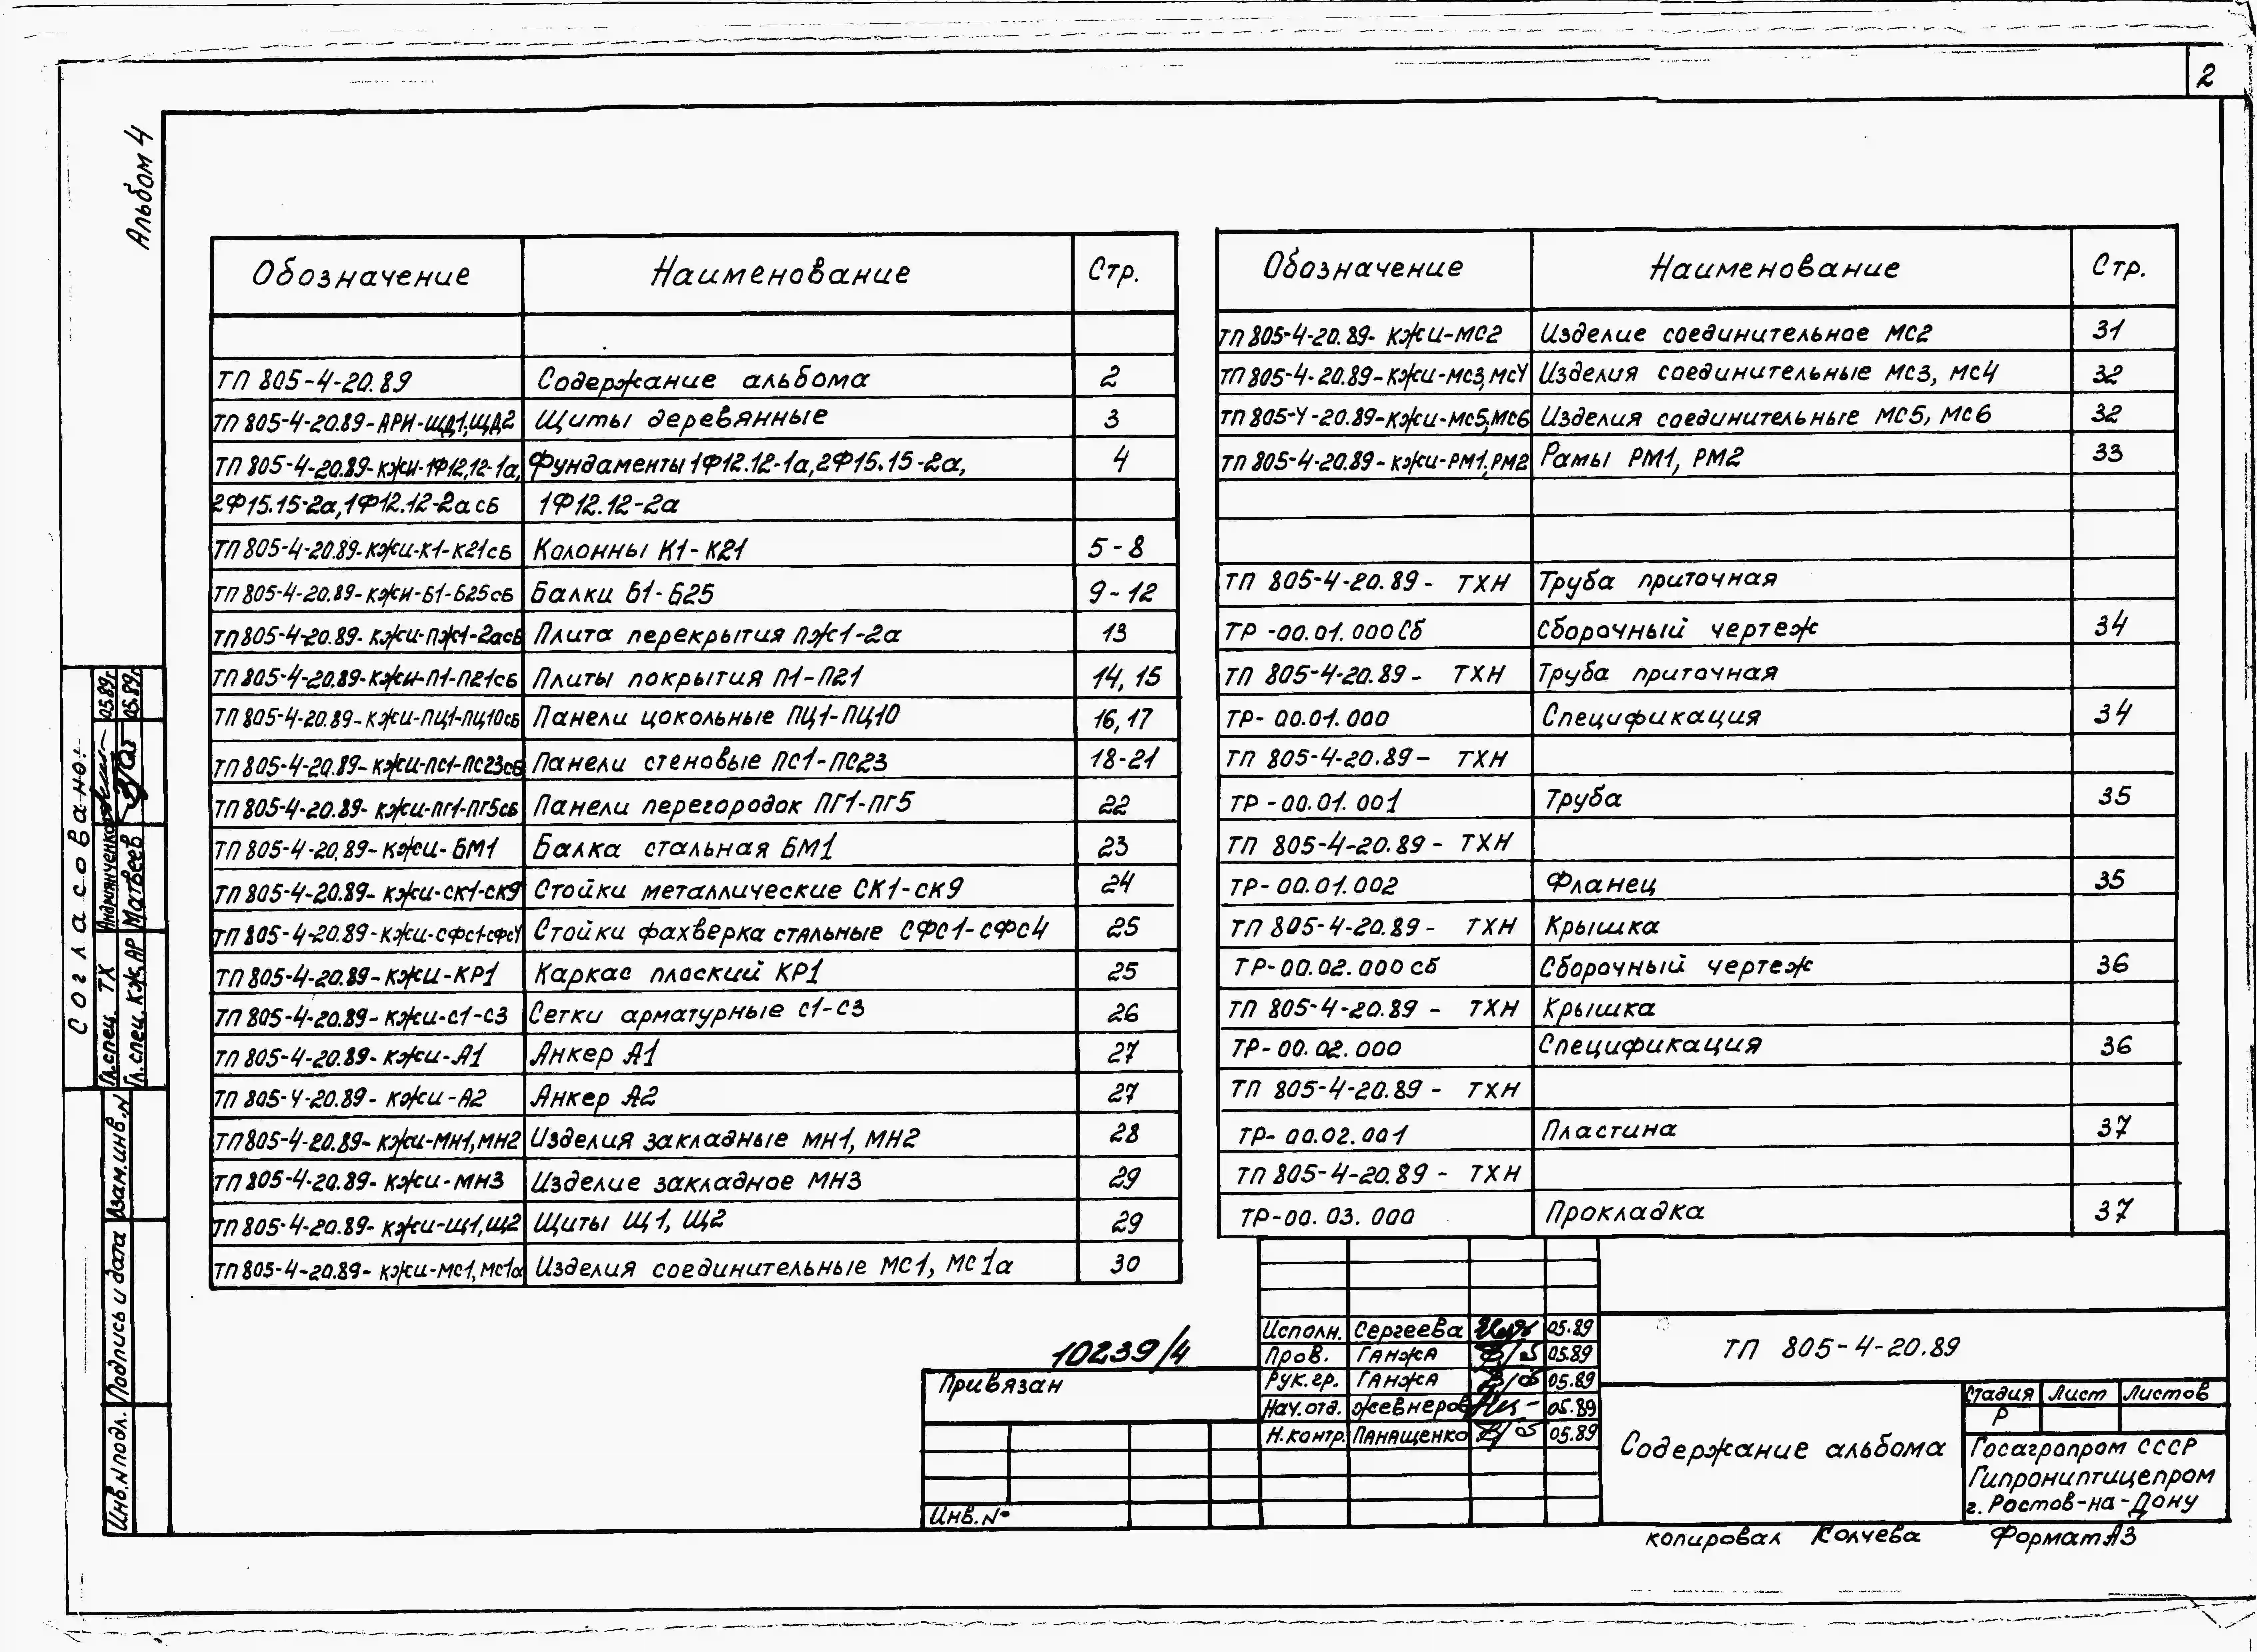 2
Альбом 4
Обозначение Наименование Стр.
ТП 805-4-20.89 Содержание альбома 2
ТП 805-4-20.89-АРИ-ЩД1,ЩД2 Щиты деревянные 3
ТП 805-4-20.89-КЖИ-1Ф12.12-1а, Фундаменты 1Ф12.12-1а, 2Ф15.15-2а, 4
2Ф15.15-2а, 1Ф12.12-2а сб 1Ф12.12-2а
ТП 805-4-20.89-КЖИ-К1-К21сб Колонны К1-К21 5-8
ТП 805-4-20.89-КЖИ-Б1-Б25сб Балки Б1-Б25 9-12
ТП 805-4-20.89-КЖИ-ПЖ1-2асб Плита перекрытия ПЖ1-2а 13
ТП 805-4-20.89-КЖИ-П1-П21сб Плиты покрытия П1-П21 14, 15
ТП 805-4-20.89-КЖИ-ПЦ1-ПЦ10сб Панели цокольные ПЦ1-ПЦ10 16, 17
ТП 805-4-20.89-КЖИ-ПС1-ПС23сб Панели стеновые ПС1-ПС23 18-21
ТП 805-4-20.89-КЖИ-ПГ1-ПГ5сб Панели перегородок ПГ1-ПГ5 22
ТП 805-4-20.89-КЖИ-БМ1 Балка стальная БМ1 23
ТП 805-4-20.89-КЖИ-СК1-СК9 Стойки металлические СК1-СК9 24
ТП 805-4-20.89-КЖИ-СФС1-СФС4 Стойки фахверка стальные СФС1-СФС4 25
ТП 805-4-20.89-КЖИ-КР1 Каркас плоский КР1 25
ТП 805-4-20.89-КЖИ-С1-С3 Сетки арматурные С1-С3 26
ТП 805-4-20.89-КЖИ-А1 Анкер А1 27
ТП 805-4-20.89-КЖИ-А2 Анкер А2 27
ТП 805-4-20.89-КЖИ-МН1,МН2 Изделия закладные МН1, МН2 28
ТП 805-4-20.89-КЖИ-МН3 Изделие закладное МН3 29
ТП 805-4-20.89-КЖИ-Щ1,Щ2 Щиты Щ1, Щ2 29
ТП 805-4-20.89-КЖИ-МС1,МС1а Изделия соединительные МС1, МС1а 30
Обозначение Наименование Стр.
ТП 805-4-20.89-КЖИ-МС2 Изделие соединительное МС2 31
ТП 805-4-20.89-КЖИ-МС3,МС4 Изделия соединительные МС3, МС4 32
ТП 805-4-20.89-КЖИ-МС5,МС6 Изделия соединительные МС5, МС6 32
ТП 805-4-20.89-КЖИ-РМ1,РМ2 Рамы РМ1, РМ2 33
ТП 805-4-20.89- ТХН Труба приточная
ТР-00.01.000Сб Сборочный чертеж 34
ТП 805-4-20.89- ТХН Труба приточная
ТР-00.01.000 Спецификация 34
ТП 805-4-20.89- ТХН
ТР-00.01.001 Труба 35
ТП 805-4-20.89- ТХН
ТР-00.01.002 Фланец 35
ТП 805-4-20.89- ТХН Крышка
ТР-00.02.000сб Сборочный чертеж 36
ТП 805-4-20.89- ТХН Крышка
ТР-00.02.000 Спецификация 36
ТП 805-4-20.89- ТХН
ТР-00.02.001 Пластина 37
ТП 805-4-20.89- ТХН
ТР-00.03.000 Прокладка 37
Согласовано:
Гл.спец. ТХ Андриянченко 05.89г.
Гл.спец. КЖ,АР Матвеев 05.89г.
Взам.инв.N
Подпись и дата
Инв.N подл.
10239/4
Привязан
Инв.N°
Исполн. Сергеева 05.89
Пров. Ганжа 05.89
Рук.гр. Ганжа 05.89
Нач.отд. Жевнеров 05.89
Н.контр. Панащенко 05.89
ТП 805-4-20.89
Содержание альбома
Стадия Лист Листов
Р
Госагропром СССР
Гипрониптицепром
г. Ростов-на-Дону
Копировал Колчева Формат А3